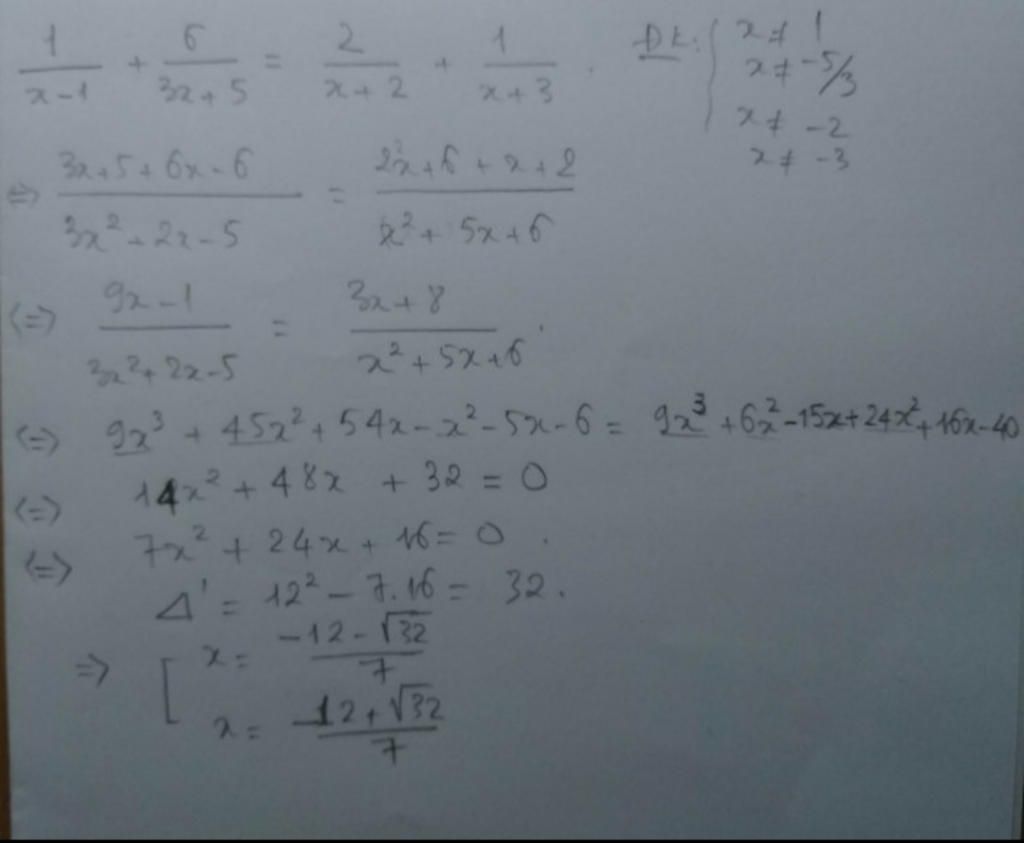 1/(x-1) + 6/(3x+5) = 2/(x+2) + 1/(x+3). ĐK: { x ≠ 1
x ≠ -5/3
x ≠ -2
x ≠ -3
⇔ (3x+5+6x-6)/(3x²+2x-5) = (2x+6+x+2)/(x²+5x+6)
⇔ (9x-1)/(3x²+2x-5) = (3x+8)/(x²+5x+6).
⇔ 9x³ + 45x² + 54x - x² - 5x - 6 = 9x³ + 6x² - 15x + 24x² + 16x - 40
⇔ 14x² + 48x + 32 = 0
⇔ 7x² + 24x + 16 = 0.
Δ' = 12² - 7.16 = 32.
⇒ [ x = (-12 - √32)/7
x = (-12 + √32)/7